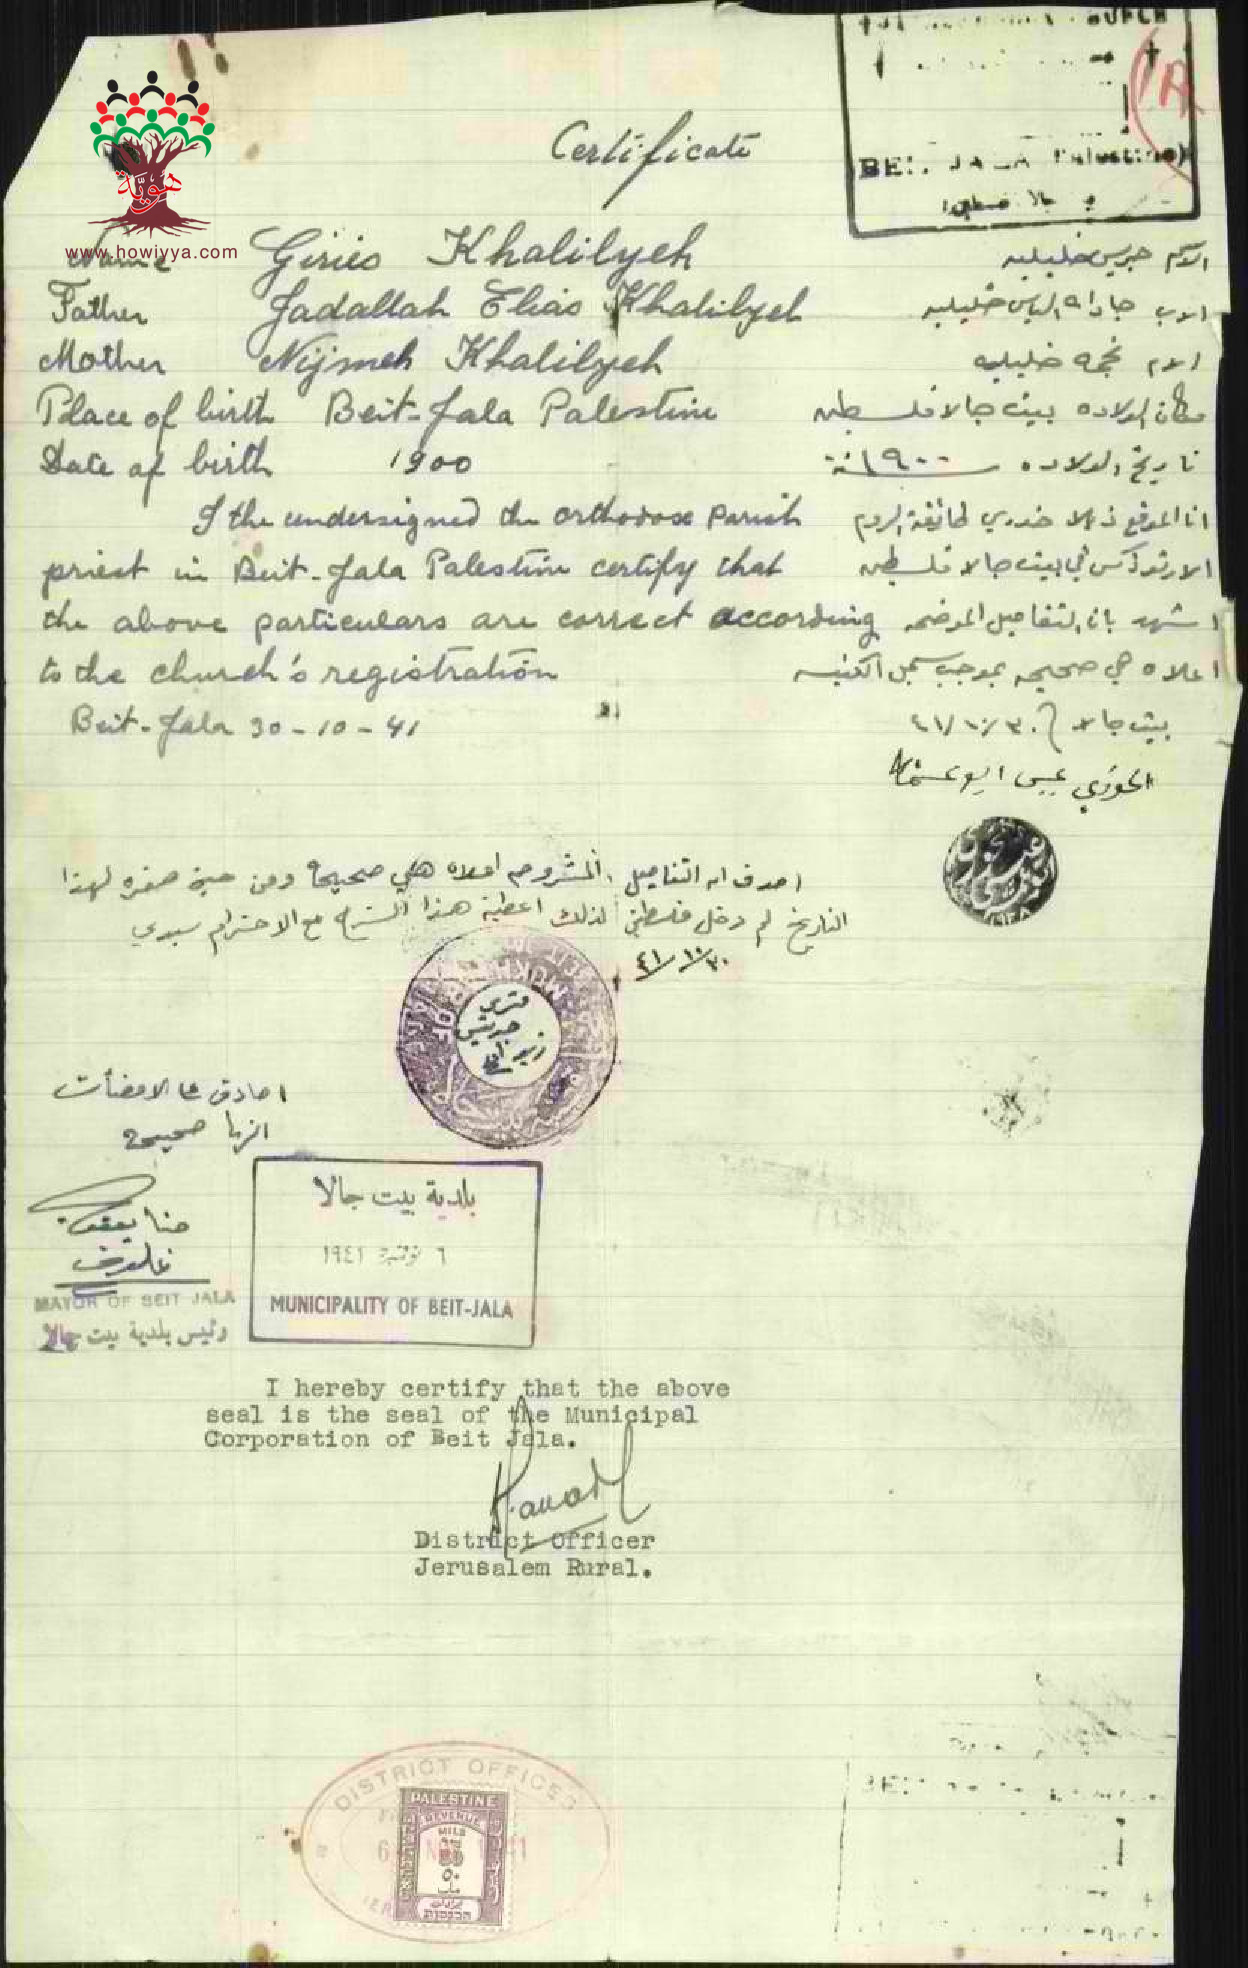 هوية
www.howiyya.com
BEIT JALA Palestine)
Certificate
Name Giries Khalilyeh
الاسم جريس خليليه
Father Jadallah Elias Khalilyeh
الاب جادالله الياس خليليه
Mother Nijmeh Khalilyeh
الام نجمه خليليه
Place of birth Beit-Jala Palestine
مكان الولاده بيت جالا فلسطين
Date of birth 1900
تاريخ الولاده سنة ١٩٠٠
I the undersigned the orthodox parish
انا الموقع خوري طائفة الروم
priest in Beit-Jala Palestine certify that
الارثوذكس في بيت جالا فلسطين
the above particulars are correct according
اشهد بان التفاصيل الموضحه
to the church's registration
اعلاه هي صحيحه بموجب سجل الكنيسه
Beit-Jala 30-10-41
بيت جالا ٤١/١٠/٣٠
الخوري عيسى
اصدق ان التفاصيل المشروحه اعلاه هي صحيحة ومن حين صغره لهذا
التاريخ لم دخل فلسطين لذلك اعطيه هذا الشرح مع الاحترام سيدي
٤١/١٠/٣٠
اصادق على الامضأت
انها صحيحة
حنا يعقوب
MAYOR OF BEIT JALA
رئيس بلدية بيت جالا
بلدية بيت جالا
٦ نوفمبر ١٩٤١
MUNICIPALITY OF BEIT-JALA
I hereby certify that the above
seal is the seal of the Municipal
Corporation of Beit Jala.
District Officer
Jerusalem Rural.
DISTRICT OFFICES
PALESTINE
REVENUE
MILS
50
٥٠
مل
הכנסות